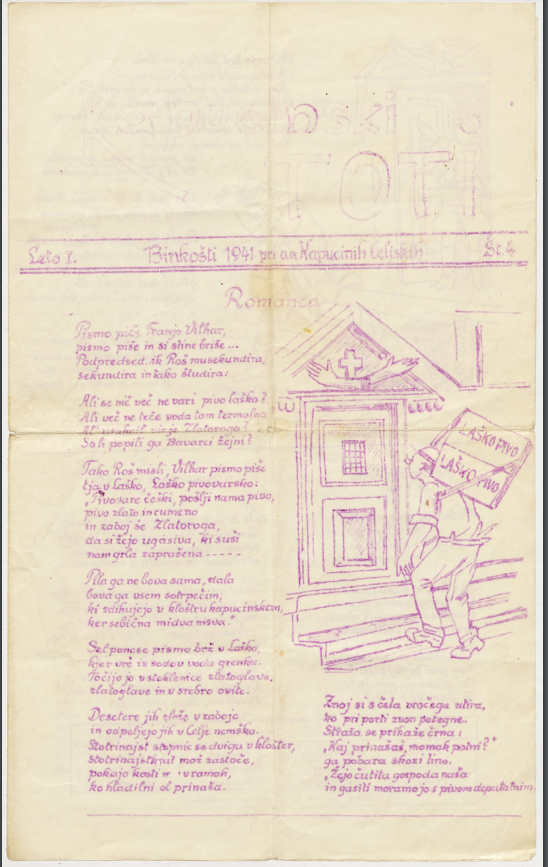 nski
TOTI
Leto I.
Binkošti 1941 pri o.o. Kapucinih Celjskih
Št. 4
Romanca
Pismo piše Franjo Vilhar,
pismo piše in si sline briše ...
Podpredsed. ik Roš mu sekundira,
sekundira in tako študira:
Ali se nič več ne vari pivo laško?
Ali več ne teče voda tam termalna
Zlatoroga?
So li popili ga Bavarci žejni?
Tako Roš misli, Vilhar pismo piše
tja v Laško, Laško pivovarsko:
"Pivovare češki, pošlji nama pivo,
pivo zlato in rumeno
in zaboj še Zlatoroga,
da si žejo ugasiva, ki suši
nam grla zaprašena -----
Pila ga ne bova sama, dala
bova ga vsem sotrpečim,
ki zdihujejo v kloštru kapucinskem,
ker sebična midva nisva."
Sel ponese pismo brž v Laško,
kjer vrè iz sodov voda grenka.
Točijo jo v steklenice zlatoglave,
zlatoglave in v srebro ovite.
Desetere jih zlože v zaboje
in odpeljejo jih v Celje nemško.
Stotrinajst stopnic se dviga v klošter,
stotrinajstkrat mož zastoče,
pokajo kosti v ramah,
ko hladilni ol prinaša.
LAŠKO PIVO
LAŠKO PIVO
Znoj si s čela vročega utira,
ko pri porti zvon potegne.
Straža se prikaže črna:
"Kaj prinašaš, momak potni?"
ga pobara skozi lino.
"Žejo čutita gospoda naša
in gasiti moramo jo s pivom deputatnim.